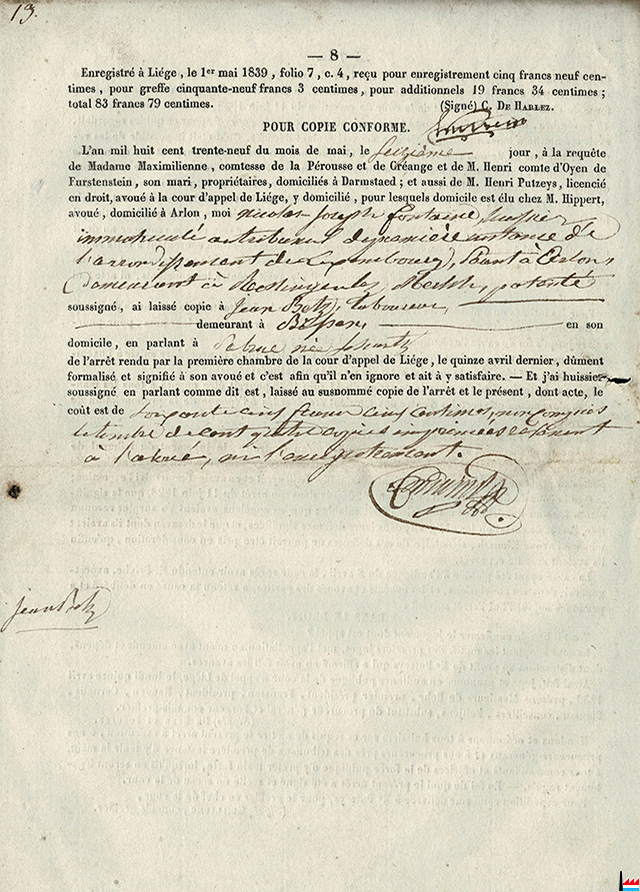 13.
— 8 —
Enregistré à Liége, le 1er mai 1839, folio 7, c. 4, reçu pour enregistrement cinq francs neuf cen-
times, pour greffe cinquante-neuf francs 3 centimes, pour additionnels 19 francs 34 centimes;
total 83 francs 79 centimes.
(Signé) C. De Harlez.
POUR COPIE CONFORME.
L'an mil huit cent trente-neuf du mois de mai, le seizième jour, à la requête
de Madame Maximilienne, comtesse de la Pérousse et de Créange et de M. Henri comte d'Oyen de
Furstenstein, son mari, propriétaires, domiciliés à Darmstaed; et aussi de M. Henri Putzeys, licencié
en droit, avoué à la cour d'appel de Liége, y domicilié, pour lesquels domicile est élu chez M. Hippert,
avoué, domicilié à Arlon, moi Nicolas Joseph Fontaine huissier
immatriculé au tribunal de première instance de
l'arrondissement de Luxembourg, séant à Arlon,
demeurant à patenté
soussigné, ai laissé copie à Jean Betz, laboureur,
demeurant à en son
domicile, en parlant à
de l'arrêt rendu par la première chambre de la cour d'appel de Liége, le quinze avril dernier, dûment
formalisé et signifié à son avoué et c'est afin qu'il n'en ignore et ait à y satisfaire. — Et j'ai huissier
soussigné en parlant comme dit est, laissé au susnommé copie de l'arrêt et le présent, dont acte, le
coût est de cinq francs cinq centimes, non compris
le timbre de cent quatre copies imprimées
à l'avoué, ni l'enregistrement.
Jean Betz